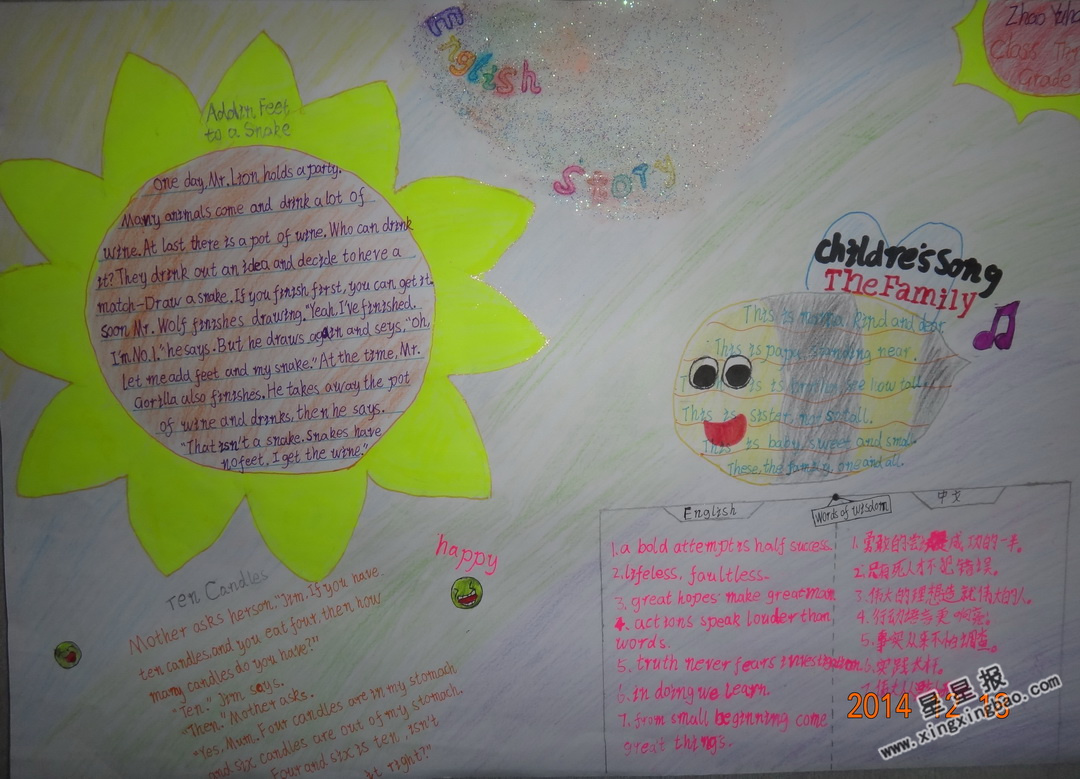 English
Story
Zhao
Class
Grade
Addin Feet
to a Snake
One day, Mr. Lion holds a party.
Many animals come and drink a lot of
wine. At last there is a pot of wine. Who can drink
it? They drink out an idea and decide to heve a
match-Draw a snake. If you finish first, you can get it.
soon Mr. Wolf finishes drawing. "Yeah I've finished.
I'm No.1." he says. But he draws again and seys, "Oh,
Let me add feet and my snake." At the time, Mr.
Gorilla also finishes. He takes away the pot
of wine and drinks, then he says.
"That isn't a snake. Snakes have
no feet. I get the wine."
childre's Song
The Family
This is mama, kind and dear.
This is papa, standing near.
is brother, see how tall.
This is sister, not so tall.
This is baby, sweet and small.
These, the family, one and all.
happy
Ten Candles
Mother asks her son. "Jim. If you have
ten candles, and you eat four, then how
many candles do you have?"
"Ten." Jim says.
"Then." Mother asks.
"Yes, Mum. Four candles are in my stomach
and six candles are out of my stomach.
Four and six is ten, isn't
it right?"
English
Words of wisdom
中文
1. a bold attempt is half success.
2. lifeless, faultless.
3. great hopes make great man
4. actions speak louder than
words.
5. truth never fears investigation.
6. in doing we learn.
7. from small beginning come
great things.
1. 勇敢的尝试是成功的一半。
2. 只有死人才不犯错误。
3. 伟大的理想造就伟大的人。
4. 行动语言更响亮。
5. 事实从来不怕调查。
6. 实践长才。
7. 伟大
2014 12 13
星星报
www.xingxingbao.com